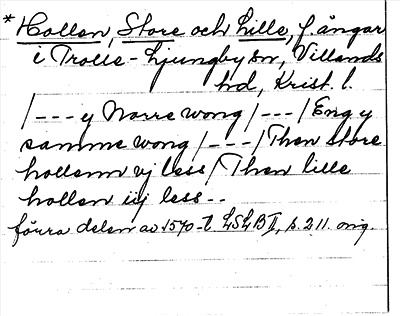 * Hollen, Store och Lille, f. ängar
i Trolle-Ljungby sn, Villands
hd, Krist. l.
/---y Norre wong /---/ Eng y
samme wong /---/ Then store
hollenn vj less / Then lille
hollen iij less --
förra delen av 1570-t. LSLB II, s. 211. orig.